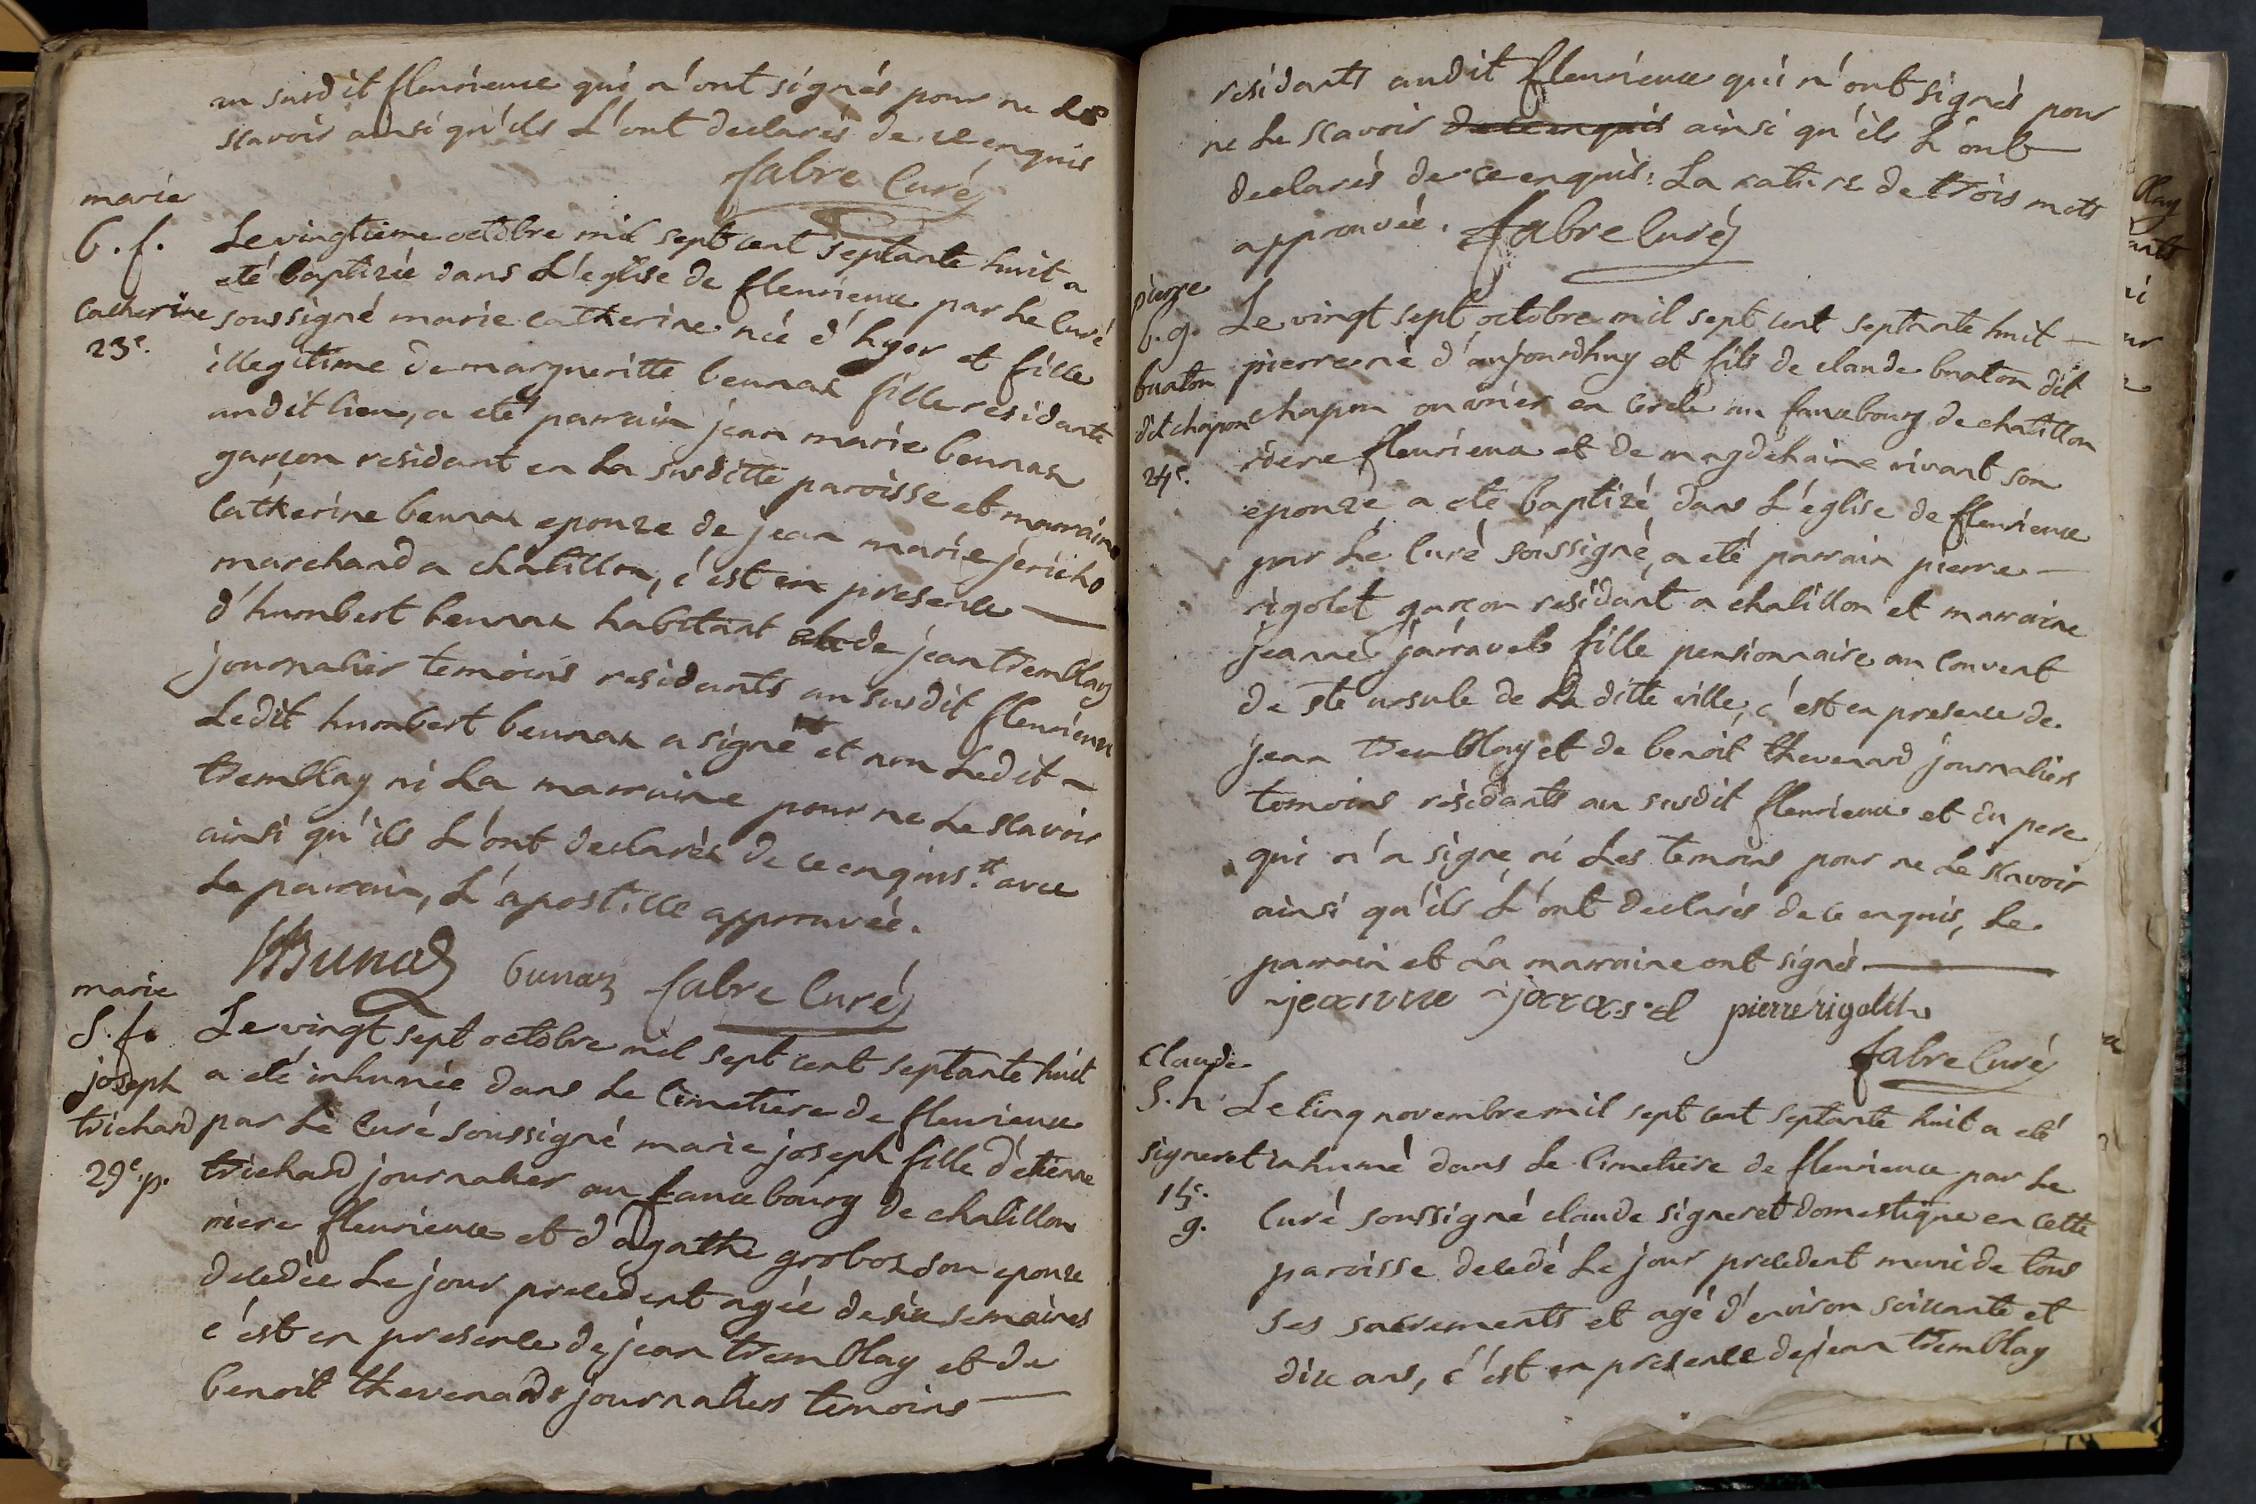 au susdit fleurieux qui n'ont signés pour ne le
scavoir ainsi qu'ils L'ont declarés de ce enquis
fabre Curé
marie
b. f.
Catherine
23e.
Le vingtieme octobre mil sept cent septante huit a
eté baptizée dans L'eglise de fleurieux par Le Curé
soussigné marie catherine née d'hyer et fille
illegitime de margueritte beunas fille residante
audit lieu, a eté parrain jean marie beunas
garçon residant en La susditte paroisse et marraine
Catherine beunas epouze de jean marie jericho
marchand a chatillon, c'est en presence —
d'humbert beunas habitant et de jean tremblay
journalier temoins residants au susdit fleurieux
Ledit humbert beunas a signé et non Ledit —
tremblay ni La marraine pour ne Le scavoir
ainsi qu'ils L'ont declarés de ce enquis. avec
Le parrain, L'apostille approuvée.
HBunas bunaz fabre Curé
marie
S. f.
joseph
trichard
29e. p.
Le vingt sept octobre mil sept cent septante huit
a eté inhumée dans Le Cimetiere de fleurieux
par Le Curé soussigné marie joseph fille d'etienne
trichard journalier au fauxbourg de chatillon
riere fleurieux et d'agathe grobos son epouze
decedée Le jour precedent agée de six semaines
c'est en presence de jean tremblay et de
benoit thevenard journaliers temoins —
residants audit fleurieux qui n'ont signés pour
ne Le scavoir de ce enquis ainsi qu'ils L'ont
declarés de ce enquis. La rature de trois mots
approuvée. fabre Curé
pierre
b. g.
buaton
dit chapon
24e.
Le vingt sept octobre mil sept cent septante huit —
pierre né d'aujourdhuy et fils de claude buaton dit
chapon ouvrier en cercle au fauxbourg de chatillon
riere fleurieux et de magdelaine vivant son
epouze a eté baptizé dans L'église de fleurieux
par Le Curé soussigné, a eté parrain pierre —
rigolet garçon residant a chatillon et marraine
jeanne jarravel fille pensionnaire au Convent
de ste ursule de La ditte ville, c'est en presence de
jean tremblay et de benoit thevenard journaliers
temoins résidants au susdit fleurieux et du pere
qui n'a signé ni Les temoins pour ne Le scavoir
ainsi qu'ils L'ont declarés de ce enquis, Le
parrain et La marraine ont signés —
jeanne jarravel pierre rigolet
fabre Curé
Claude
S. h.
signeret
15e.
g.
Le Cinq novembre mil sept cent septante huit a eté
inhumé dans Le Cimetiere de fleurieux par Le
Curé soussigné claude signeret domestique en cette
paroisse decedé Le jour precedent muni de tous
ses sacrements et agé d'environ soixante et
dix ans, c'est en presence de jean tremblay